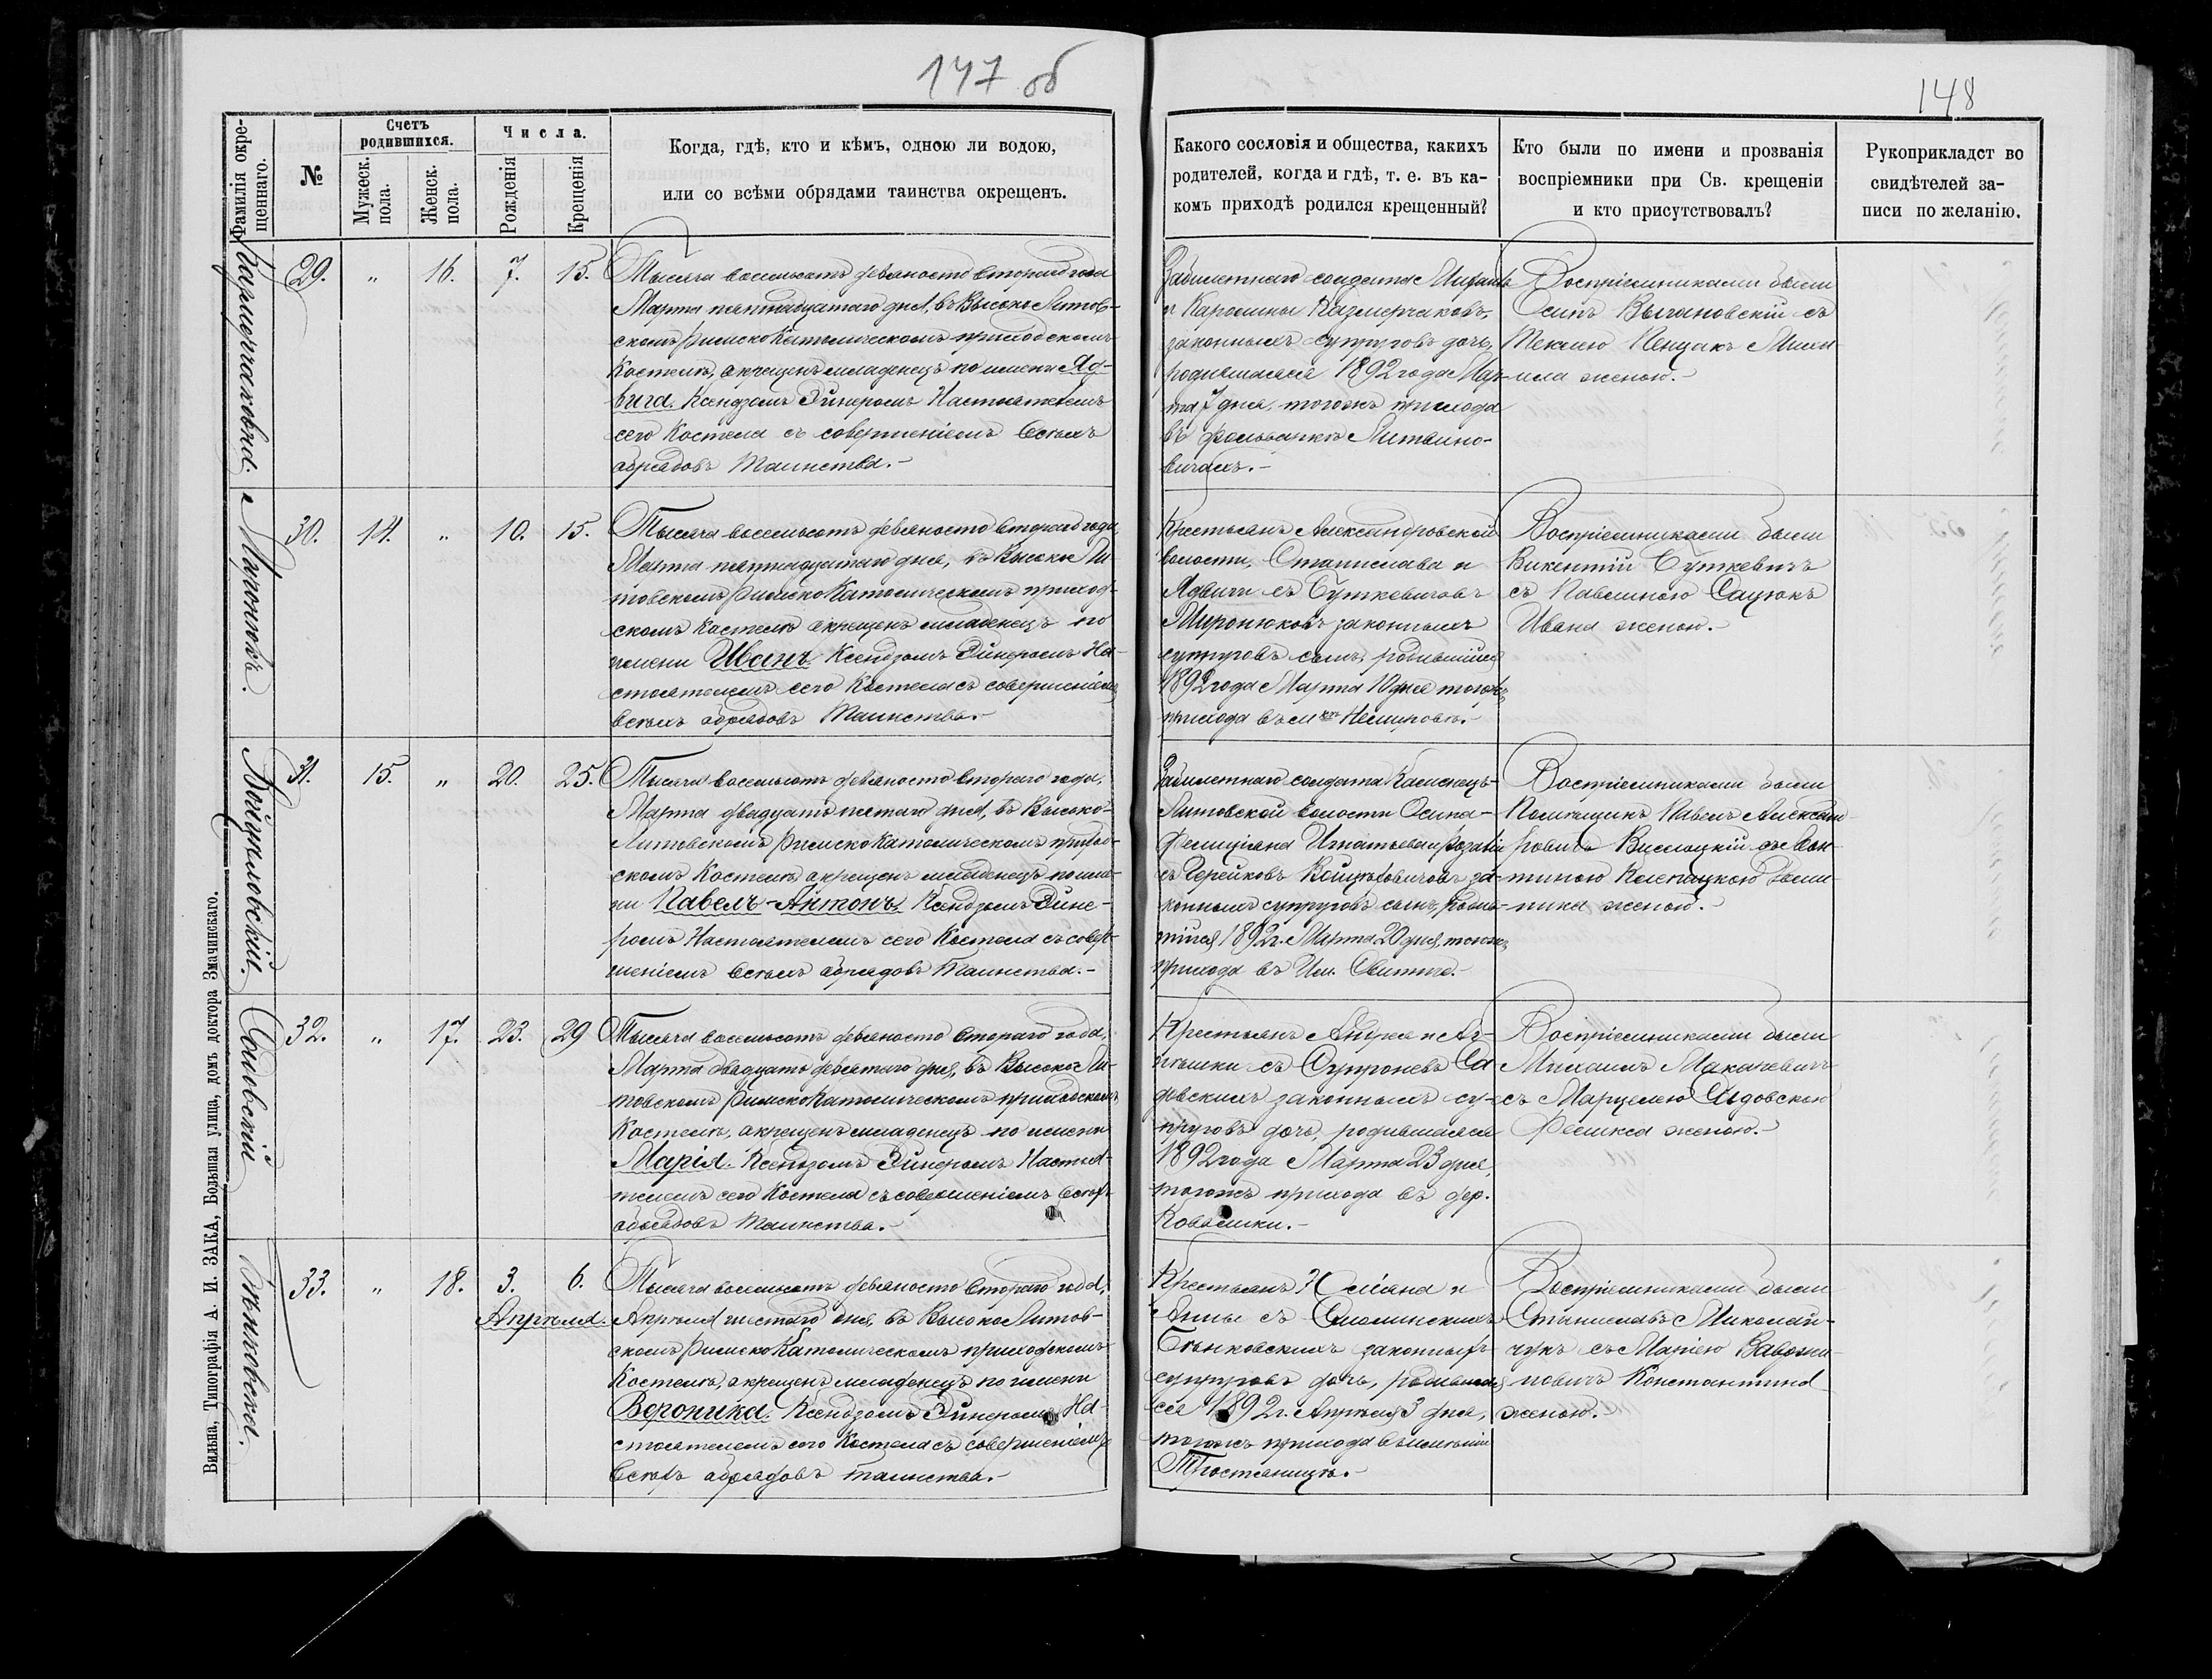 147 об
148
Фамилія окре-
щеннаго.
№
Счетъ
родившихся.
Мужеск.
пола.
Женск.
пола.
Числа.
Рожденія
Крещенія
Когда, гдѣ, кто и кѣмъ, одною ли водою,
или со всѣми обрядами таинства окрещенъ.
Какого сословія и общества, какихъ
родителей, когда и гдѣ, т. е. въ ка-
комъ приходѣ родился крещенный?
Кто были по имени и прозванія
воспріемники при Св. крещеніи
и кто присутствовалъ?
Рукоприкладст во
свидѣтелей за-
писи по желанію.
29. " 16. 7. 15.
Тысяча восемьсотъ девяносто второго года
Марта пятнадцатаго дня, въ Высоко Литов-
скомъ Римско Католическомъ приходскомъ
Костелѣ, окрещенъ младенецъ по имени Яд-
вига. Ксендзомъ Эйнеромъ Настоятелемъ
сего Костела съ совершеніемъ всѣхъ
обрядовъ Таинства.-
Забилетнаго солдата Михаила
и Каролины Казмерчаковъ,
законныхъ супруговъ дочь,
родившаяся 1892 года Мар-
та 7 дня, тогожъ прихода
въ фольваркѣ Литвино-
вичахъ.-
Воспріемниками были
Осипъ Выгановскій съ
Теклею Пенцакъ Миха
ила женою.-
Миронюкъ.
30. 14. " 10. 15.
Тысяча восемьсотъ девяносто второго года
Марта пятнадцатаго дня, въ Высоко Ли
товскомъ Римско Католическомъ приход-
скомъ Костелѣ окрещенъ младенецъ по
имени Иванъ. Ксендзомъ Эйнеромъ На-
стоятелемъ сего Костела съ совершеніемъ
всѣхъ обрядовъ Таинства.-
Крестьянъ Александровской
волости, Станислава и
Ядвиги съ Буткевичовъ
Миронюковъ законныхъ
супруговъ сынъ, родившійся
1892 года Марта 10 дня тогожъ
прихода въ м кѣ Немировѣ.-
Воспріемниками были
Викентій Буткевичъ
съ Павлиною Сацюкъ
Ивана женою.-
31. 15. " 20. 25.
Тысяча восемьсотъ девяносто второго года,
Марта двадцать пятаго дня, въ Высоко-
Литовскомъ Римско Католическомъ приход-
скомъ Костелѣ, окрещенъ младенецъ по име-
ни Павелъ-Антонъ. Ксендзомъ Эйне-
ромъ Настоятелемъ сего Костела съ совер-
шеніемъ всѣхъ обрядовъ Таинства.-
Забилетнаго солдата Каменецъ-
Литовской волости Осипа-
законныхъ супруговъ сынъ, родив-
шійся 1892 г. Марта 20 дня, тогожъ
прихода въ Им.
Воспріемниками были
Помѣщикъ Павелъ Александ-
женою.-
Садовскій
32. " 17. 23. 29
Тысяча восемьсотъ девяносто второго года,
Марта двадцать девятаго дня, въ Высоко Ли-
товскомъ Римско Католическомъ приходскомъ
Костелѣ, окрещенъ младенецъ по имени
Марія. Ксендзомъ Эйнеромъ Настоя-
телемъ сего Костела съ совершеніемъ всѣхъ
обрядовъ Таинства.-
Крестьянъ Андрея и
съ Супроневъ Са
довскихъ законныхъ су-
пруговъ дочь, родившаяся
1892 года Марта 23 дня,
тогожъ прихода въ дер.
Воспріемниками были
Михаилъ Макаревичъ
съ Марцелею Садовскою
женою.-
Бѣньковская.
33. " 18. 3. 6.
Апрѣля.
Тысяча восемьсотъ девяносто второго года,
Апрѣля шестаго дня, въ Высоко Литов-
скомъ Римско Католическомъ приходскомъ
Костелѣ, окрещенъ младенецъ по имени
Вероника. Ксендзомъ Эйнеромъ На-
стоятелемъ сего Костела съ совершеніемъ
всѣхъ обрядовъ таинства.-
Крестьянъ Юліана и
Анны съ Смолинскихъ
Бѣньковскихъ законныхъ
супруговъ дочь, родившая
ся 1892 г. Апрѣля 3 дня,
тогожъ прихода въ имѣніи
Тростяницѣ.-
Воспріемниками были
Станиславъ Миколай-
чукъ съ Маріею Ваврыни-
новичъ Константина
женою.-
Вильна, Типографія А. И. ЗАКА, Большая улица, домъ доктора Змачинскаго.